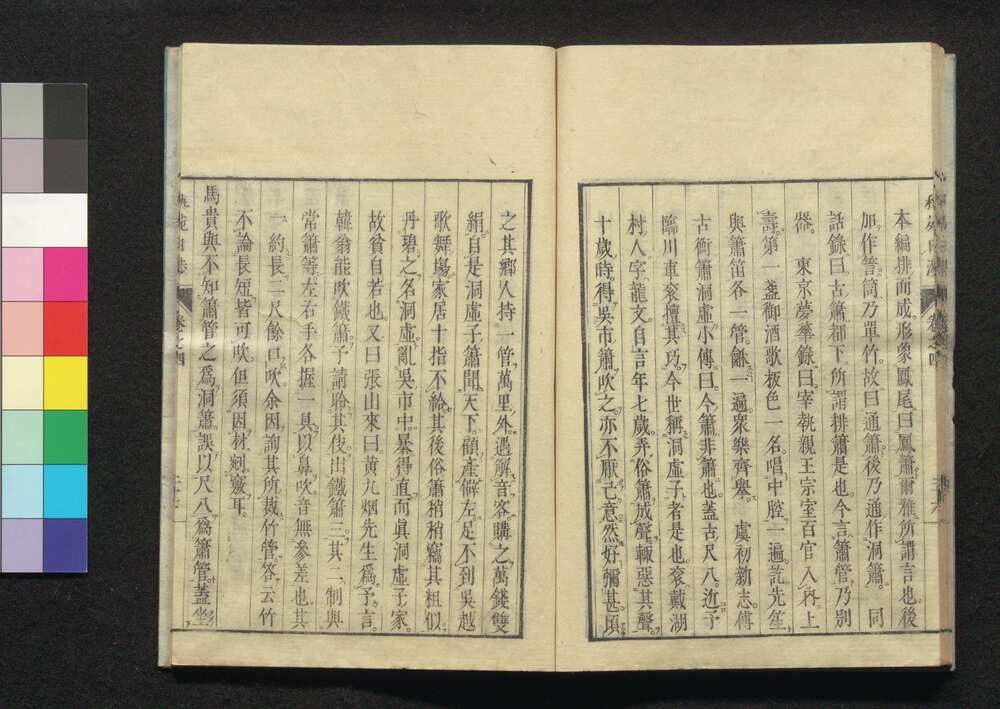 本編排而成形象鳳尾曰鳳簫爾雅所謂言也後
加作管筒乃單竹故曰通簫後乃通作洞簫 同
話錄曰古簫都下所謂排簫是也今言簫管乃別
器 東京夢華錄曰宰執親王宗室百官入內上
壽第一盞御酒歌板色一名唱中腔一遍訖先笙
與簫笛各一管龢一遍衆樂齊擧 虞初新志傅
古衡簫洞虛小傳曰今簫非簫也蓋古尺八近予
臨川車袞擅其巧今世稱洞虛子者是也袞戴湖
村人字龍文自言年七歲弄俗簫成聲輒惡其聲
十歲時得吳市簫吹之亦不厭已意然好彌甚頃
之其鄉人持一管萬里外遇解音客購之萬錢雙
絹自是洞虛子簫聞天下顧產僻左足不到吳越
歌舞塲家居十指不給其後俗簫稍稍竊其粗似
丹碧之名洞虛亂吳市中暴得直而眞洞虛子家
故貧自若也又曰張山來曰黃九烟先生爲予言
韓翁能吹鐵簫予請聆其伎出鐵簫三其二制與
常簫等左右手各握一具以鼻吹音無參差也其
一約長二尺餘口吹余因詢其所裁竹管答云竹
不論長短皆可吹但須因材剜竅耳
馬貴與不知簫管之爲洞簫誤以尺八爲簫管蓋坐
卷之四